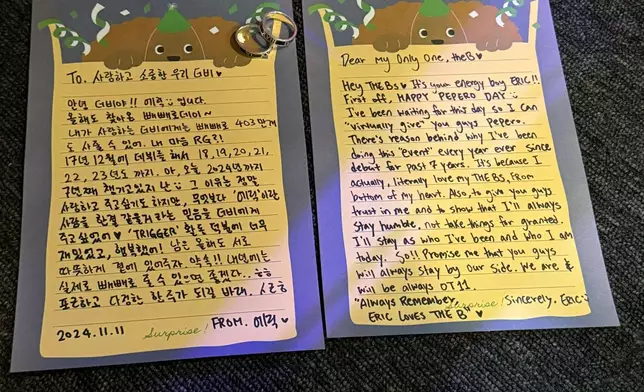 To. 사랑하고 소중한 우리 더비♥
안녕 더비야!! 에릭 :) 입니다.
올해도 찾아온 빼빼로데이~
내가 사랑하는 더비에게는 빼빼로 403만개
도 사줄 수 있어. 내 마음 RG?!
17년 12월에 데뷔를 해서 18, 19, 20, 21,
22, 23년도 까지. 아, 오늘 2024년까지
7년째 챙기고있지 난 :) 그 이유는 정말
사랑하고 주고싶기도 하지만, 무엇보다 '에릭'이란
사람을 한결 같을거라는 믿음을 더비에게
주고싶었어♥ 'TRIGGER' 활동 덕분에 너무
재밌었고, 행복했어! 남은 올해도 서로
따뜻하게 곁에 있어주자. 약속!! 내년에는
실제로 빼빼로 줄 수 있으면 좋겠다..ㅎㅎ
포근하고 다정한 한 주가 되길 바래.
2024.11.11
Surprise!
FROM. 에릭 ♥
Dear My Only One, theB♥
Hey THEBs♥ It's your energy boy ERIC!!
First off, HAPPY "PEPERO DAY" :)
I've been waiting for this day so I can
"virtually give" you guys Pepero.
There's reason behind why I've been
doing this "event" every year ever since
debut for past 7 years. It's because I
actually, literally love my THEBS. From
bottom of my heart. Also, to give you guys
trust in me and to show that I'll always
stay humble, not take things for granted.
I'll stay as who I've been and who I am
today. So!! Promise me that you guys
will always stay by our side. We are &
will be always OT11.
"Always Remember,
Surprise!
Sincerely, ERIC :)
ERIC LOVES THE B" ♥